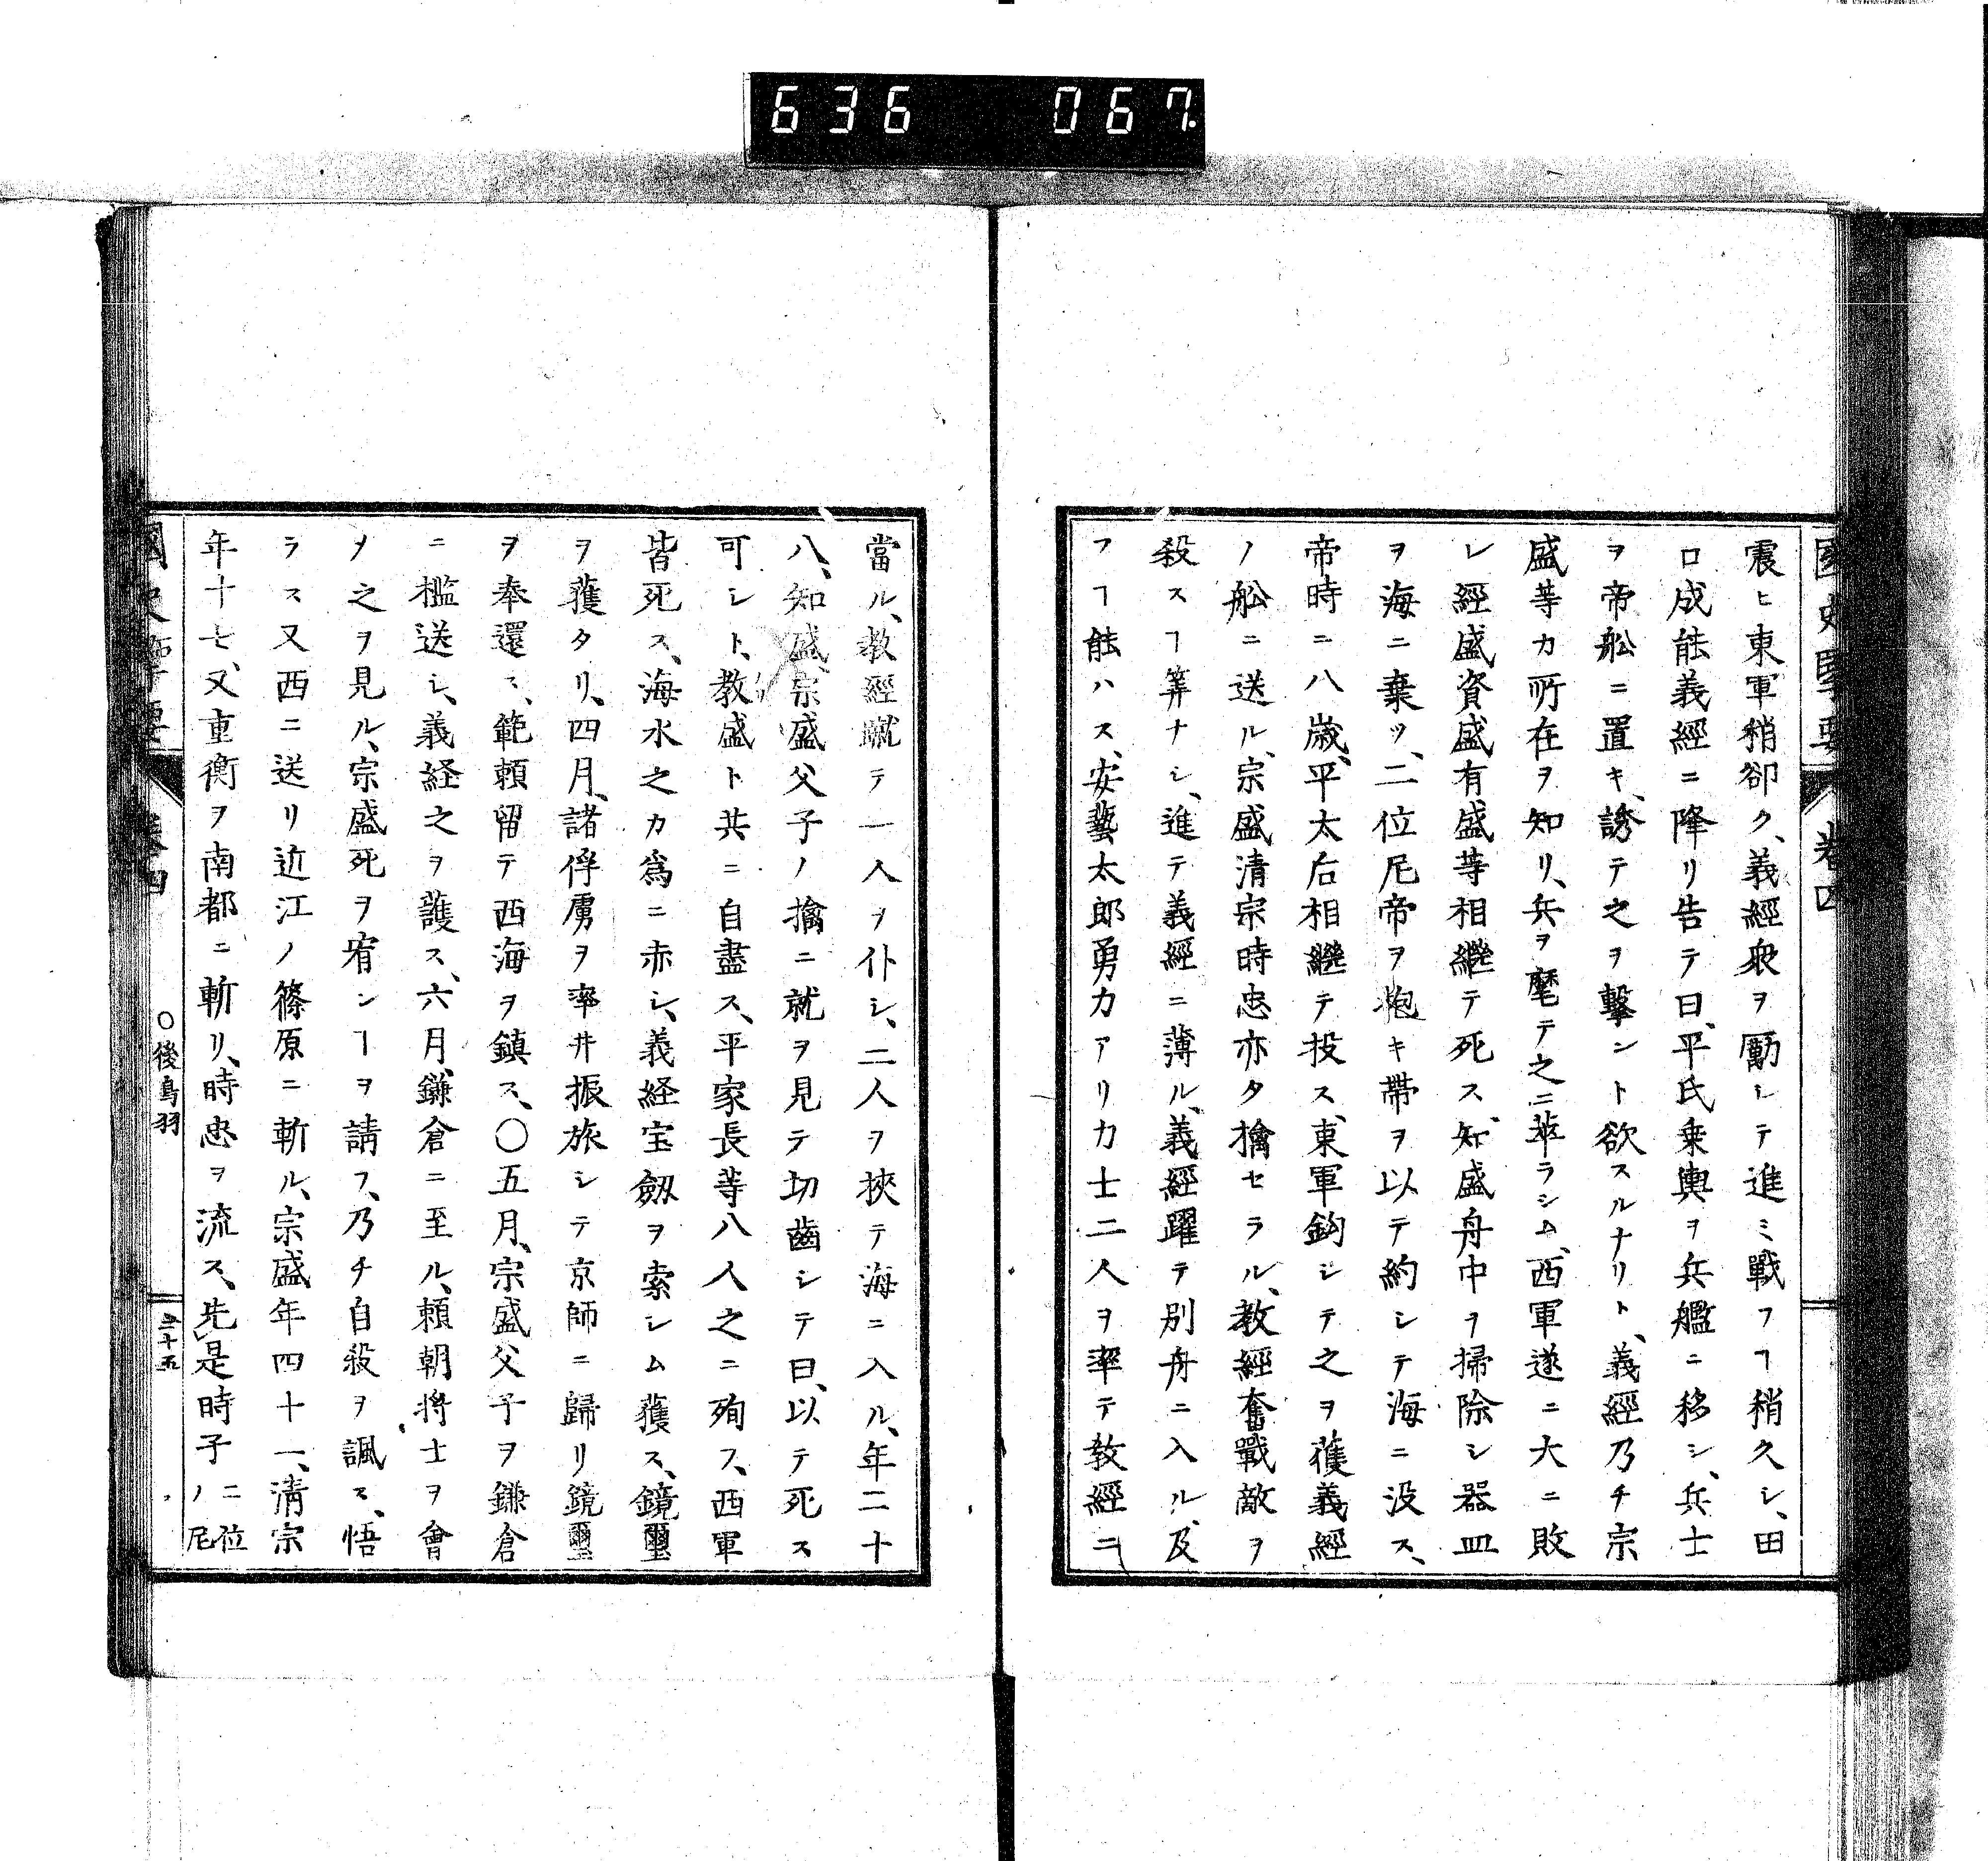 636 067
國史擥要 卷四
震ヒ東軍稍卻ク、義經衆ヲ勵シテ進ミ戰フヿ稍久シ、田
口成能義經ニ降リ告テ曰、平氏乗輿ヲ兵艦ニ移シ、兵士
ヲ帝舩ニ置キ、誘テ之ヲ撃ント欲スルナリト、義經乃チ宗
盛等カ所在ヲ知リ、兵ヲ麾テ之ニ萃ラシム、西軍遂ニ大ニ敗
レ經盛資盛有盛等相繼テ死ス、知盛舟中ヲ掃除シ器皿
ヲ海ニ棄ツ、二位尼帝ヲ抱キ帶ヲ以テ約シテ海ニ没ス、
帝時ニ八歳、平太后相繼テ投ス、東軍鈎シテ之ヲ獲義經
ノ舩ニ送ル、宗盛清宗時忠亦タ擒セラル、教經奮戰敵ヲ
殺スヿ筭ナシ、進テ義經ニ薄ル、義經躍テ別舟ニ入ル、及
フヿ能ハス、安藝太郎勇力アリ力士二人ヲ率テ教經ニ
當ル、教經蹴テ一人ヲ仆シ、二人ヲ挾テ海ニ入ル、年二十
八、知盛、宗盛父子ノ擒ニ就ヲ見テ切齒シテ曰、以テ死ス
可シト、教盛ト共ニ自盡ス、平家長等八人之ニ殉フ、西軍
皆死ス、海水之カ爲ニ赤シ、義経宝劔ヲ索シム獲ス、鏡璽
ヲ獲タリ、四月、諸俘虜ヲ率井振旅シテ京師ニ歸リ鏡璽
ヲ奉還ス、範頼留テ西海ヲ鎮ス、〇五月、宗盛父子ヲ鎌倉
ニ檻送シ、義経之ヲ護ス、六月、鎌倉ニ至ル、頼朝將士ヲ會
メ之ヲ見ル、宗盛死ヲ宥ンヿヲ請フ、乃チ自殺ヲ諷ス、悟
ラス又西ニ送リ近江ノ篠原ニ斬ル、宗盛年四十一、清宗
年十七、又重衡ヲ南都ニ斬リ、時忠ヲ流ス、先是時子二位ノ尼
國史擥要 卷四 〇後鳥羽 三十五